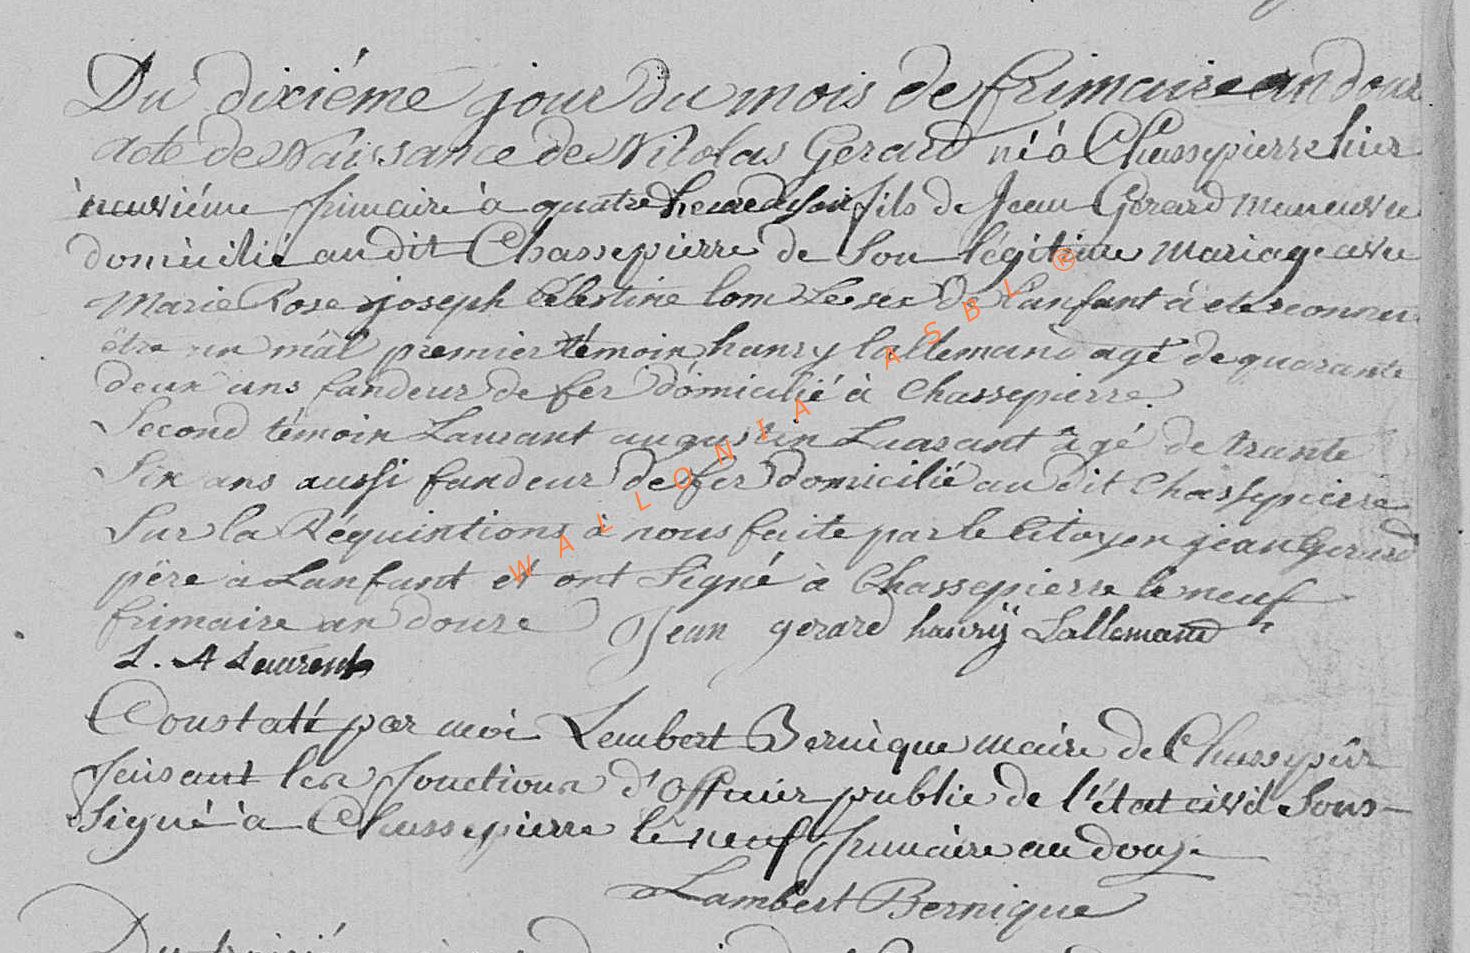 Du dixiéme jour du mois de frimaire an douze
acte de Naissance de Nicolas Gerard né à Chassepierre hier
neuviéme frimaire à quatre heure du soir fils de Jean Gerard maneuvre
domicilié audit Chassepierre de Son légitime mariage avec
Marie Rose joseph Célestine lom Le sex De l'anfant à eté reconnu
être un mâl premier témoin hanry lallemand agé de quarante
deux ans fandeur de fer domicilié à Chassepierre.
Second témoin Laurant augustin Laurant âgé de trante
Six ans aussi fandeur de fer domicilié audit Chassepierre
Sur la Requintions à nous faite par le Citoyen jean Gerard
père à Lanfant et ont Signé à Chassepierre le neuf
frimaire an douze Jean gerard hanrÿ Lallemand
L. A Laurent
Constaté par moi Lambert Bernique maire de Chassepier
faisant les fonctions d'officier public de l'état civil Sous-
Signé à Chassepierre le neuf frimaire an douze
Lambert Bernique
WALLONIA ASBL ®